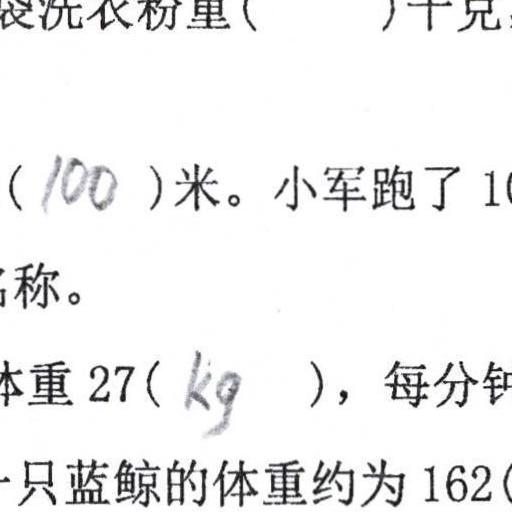 袋洗衣粉重(  )千克,
( 100 )米。小军跑了 10
名称。
体重 27( kg ),每分钟
一只蓝鲸的体重约为 162(